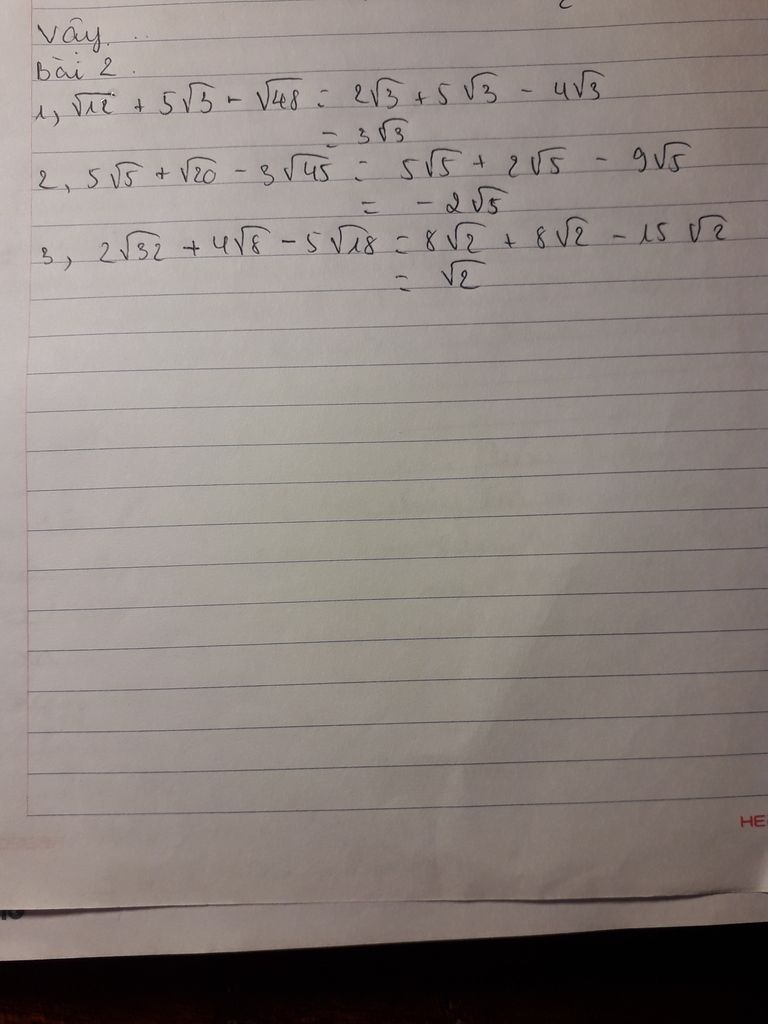 Vậy...
Bài 2.
1, √12 + 5√3 - √48 = 2√3 + 5√3 - 4√3
= 3√3
2, 5√5 + √20 - 3√45 = 5√5 + 2√5 - 9√5
= -2√5
3, 2√32 + 4√8 - 5√18 = 8√2 + 8√2 - 15√2
= √2
HE